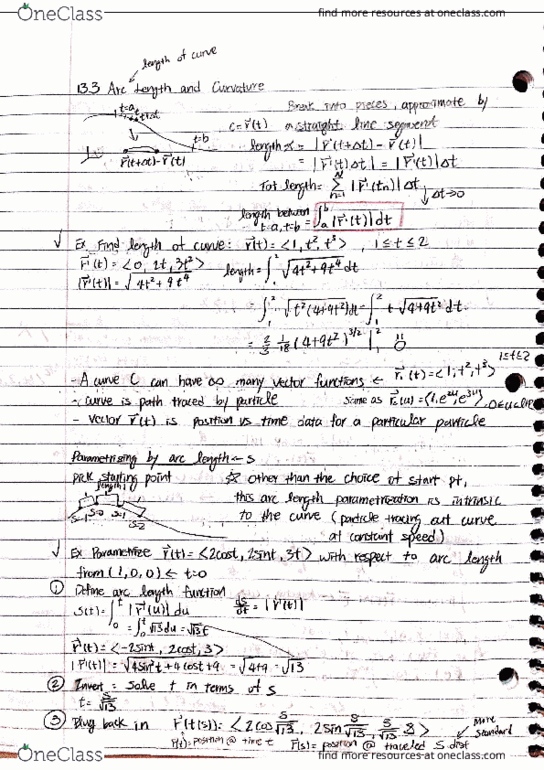 OneClass
find more resources at oneclass.com
length of curve
13.3 Arc Length and Curvature
Break into pieces, approximate by
a straight line segment
t=a
t+Δt
t=b
C = r⃗(t)
length ≈ = |r⃗(t+Δt) - r⃗(t)|
r⃗(t+Δt) - r⃗(t)
= |r⃗'(t)Δt| = |r⃗'(t)|Δt
Tot length = Σ n=1 |r⃗'(tn)| Δt
↓ Δt→0
length between t=a, t=b = ∫ₐᵇ |r⃗'(t)| dt
√ Ex. Find length of curve: r⃗(t) = <1, t², t³>, 1≤t≤2
r⃗'(t) = <0, 2t, 3t²> length = ∫₁² √4t²+9t⁴ dt
|r⃗'(t)| = √4t²+9t⁴
∫₁² √t²(4+9t²) dt = ∫₁² t √4+9t² dt
= 2/3 1/18 (4+9t²)^3/2 |₁²
1≤t≤2
- A curve C can have ∞ many vector functions ← r⃗₁(t) = <1, t², t³>
- curve is path traced by particle same as r⃗₂(u) = <1, e^2u, e^3u>
- vector r⃗(t) is position vs time data for a particular particle
Parametrizing by arc length ← s
pick starting point ※ other than the choice of start pt,
length 1
this arc length parametrization is intrinsic
s=-1 s=0 s=1 s=2
to the curve (particle tracing out curve
at constant speed)
√ Ex Parametrize r⃗(t) = <2cost, 2sint, 3t> with respect to arc length
from (1,0,0) ← t=0
① Define arc length function
s(t) = ∫₀ᵗ |r⃗'(u)| du ds/dt = |r⃗'(t)|
= ∫₀ᵗ √13 du = √13 t
r⃗'(t) = <-2sint, 2cost, 3>
|r⃗'(t)| = √4sin²t+4cost+9 = √4+9 = √13
② Invert: solve t in terms of s
t = s/√13
③ Plug back in r⃗(t(s)) = <2cos s/√13, 2sin s/√13, s/√13 3>
more standard
r⃗(t) = position @ time t r⃗(s) = position @ traveled s dist
OneClass
find more resources at oneclass.com